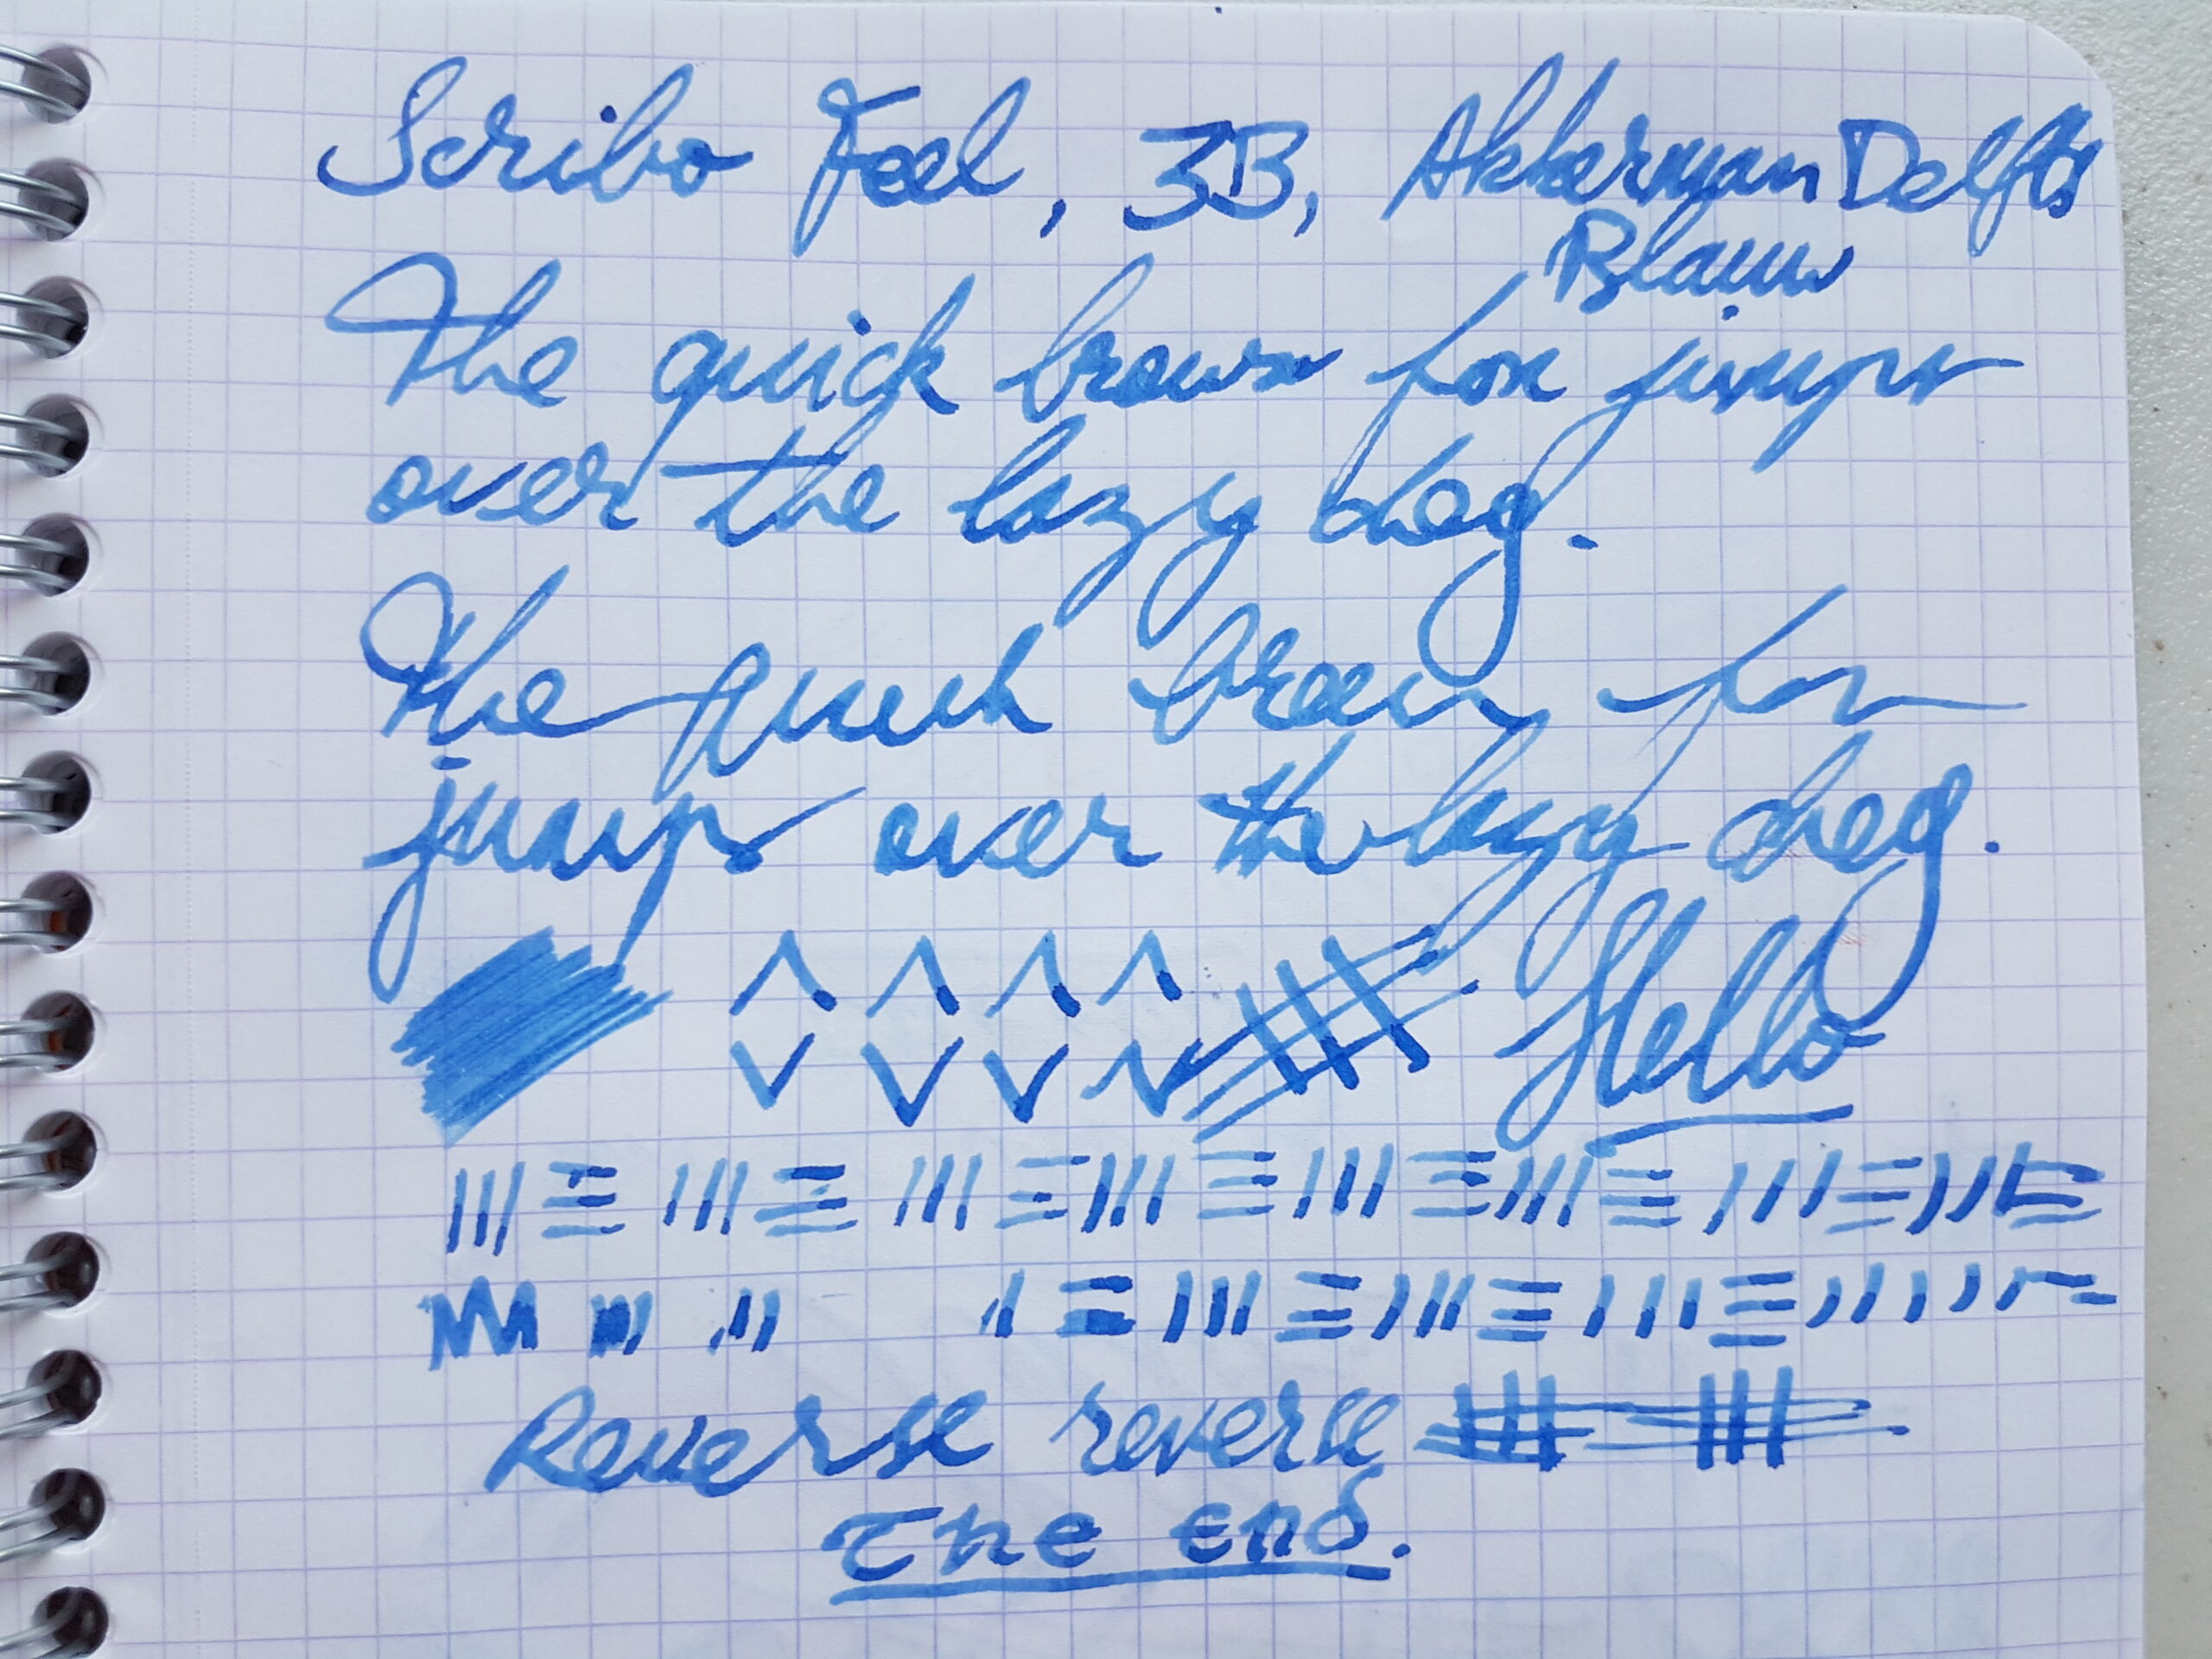 Scribo Feel, 3B, Akkerman Delfts
Blauw
The quick brown fox jumps
over the lazy dog.
The quick brown fox
jumps over the lazy dog.
Hello
Reverse reverse
The end.